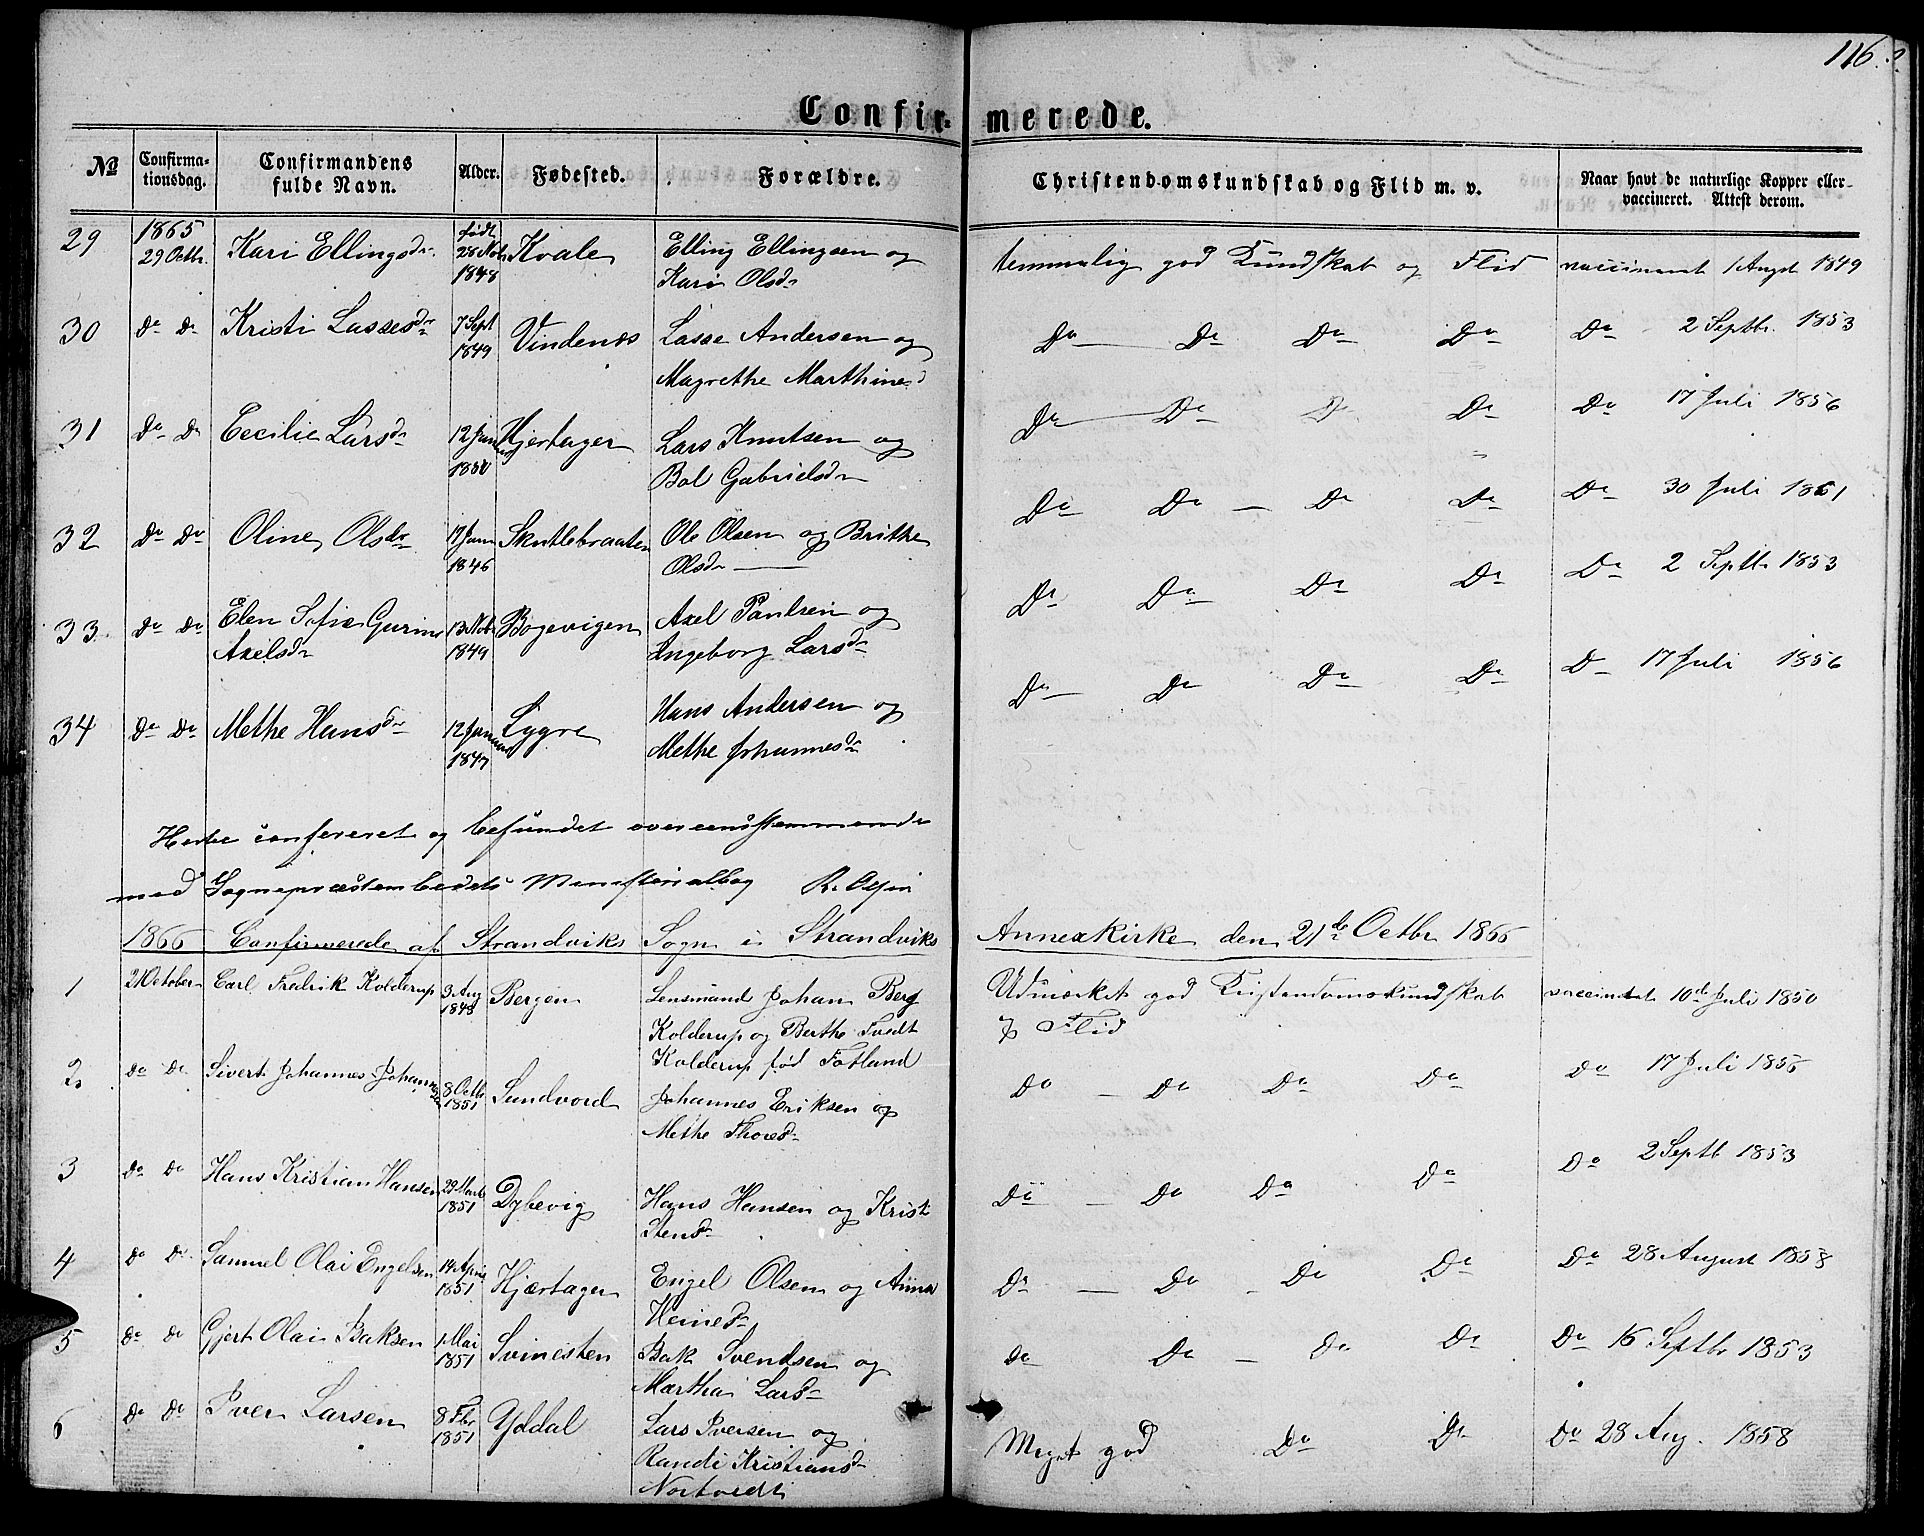 116.
Confirmerede.
№ Confirmationsdag. Confirmandens fulde Navn. Alder. Fødested. Forældre. Christendomskundskab og Flid m. v. Naar havt de naturlige Kopper eller vaccineret. Attest derom.
29 1865 29 Octbr. Kari Ellingsdr født 28 Nob 1848 Kvale Elling Ellingsen og Kari Olsdr temmelig god Kundskab og Flid vaccineret 1 Augst 1849
30 Do Do Kristi Lassesdr 7 Sept 1849 Vindenes Lasse Andersen og Magrethe Marthinesd Do Do Do Do Do 2 Septbr. 1853
31 Do Do Cecilie Larsdr 12 Januar 1850 Hjertager Lars Knutsen og Bol Gabrielsdr Do Do Do Do Do 17 Juli 1856
32 Do Do Oline Olsdr 17 Juni 1846 Skutlebraaten Ole Olsen og Brithe Olsdr Do Do Do Do Do 30 Juli 1861
33 Do Do Elen Sofie Gurine Axelsdr 13 Nob 1849 Bogevigen Axel Paulsen og Ingeborg Larsdr Do Do Do Do Do 2 Septb 1853
34 Do Do Methe Hansdr 12 Januar 1847 Lygre Hans Andersen og Methe Johannesdr Do Do Do Do Do 17 Juli 1856
confereret og befundet overeensstemmende
med Sognepræstembedets Ministerialbog
1866 Confirmerede af Strandviks Sogn i Strandviks Annexkirke den 21de Octbr 1866
1 21 October Carl Fredrik Kolderup 3 Aug 1848 Bergen Lensmand Johan Berg Kolderup og Berthe Tvedt Kolderup fød Fotland Udmærket god Kristendomskundskab og Flid vaccineret 10de Juli 1850
2 Do Do Sivert Johannes Johannes 8 Octb 1851 Sundvord Johannes Eriksen og Methe Thoresdr Do Do Do Do Do 17 Juli 1856
3 Do Do Hans Kristian Hansen 29 Marts 1851 Dybevig Hans Hansen og Kristi Stensdr Do Do Do Do Do 2 Septb 1853
4 Do Do Samuel Olai Engelsen 14 April 1851 Hjærtager Engel Olsen og Anna Heinesdr Do Do Do Do Do 28 August 1858
5 Do Do Gjert Olai Baksen 1 Mai 1851 Svinesten Bak Svendsen og Martha Larsdr Do Do Do Do Do 16 Septbr 1853
6 Do Do Iver Larsen 8 Fbr 1851 Yddal Lars Iversen og Randi Kristiansdr Nortvedt Meget god Do Do Do 28 Aug. 1858